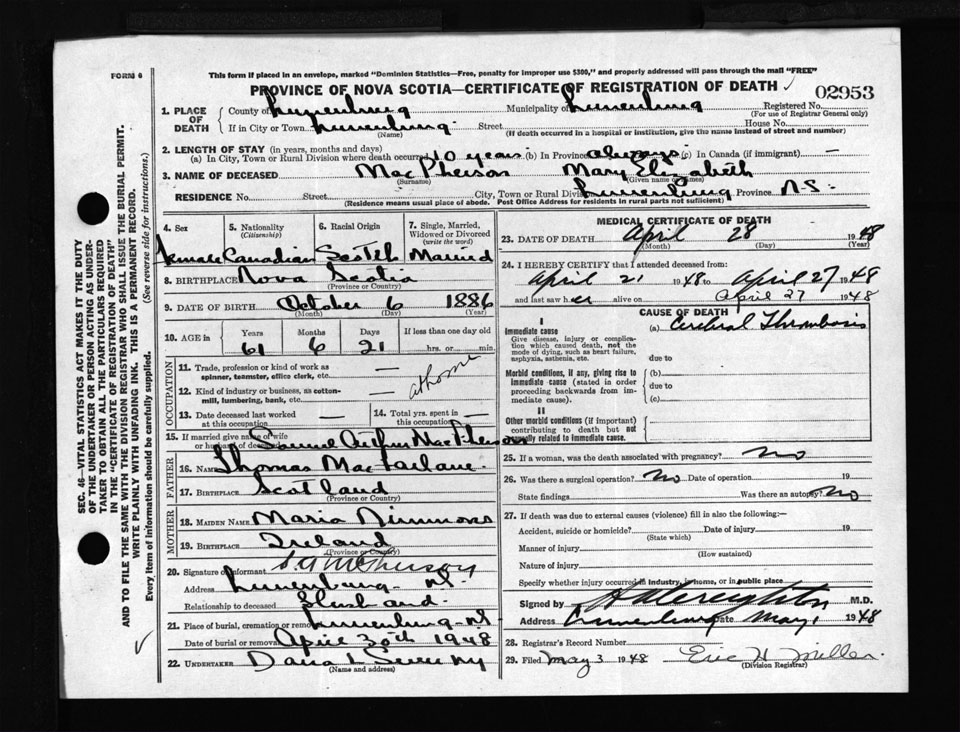 FORM 6
This form if placed in an envelope, marked "Dominion Statistics—Free, penalty for improper use $300," and properly addressed will pass through the mail "FREE"
PROVINCE OF NOVA SCOTIA—CERTIFICATE OF REGISTRATION OF DEATH
02953
1. PLACE OF DEATH
County of Lunenburg Municipality of Lunenburg Registered No.
(For use of Registrar General only)
If in City or Town Lunenburg Street House No.
(Name) (If death occurred in a hospital or institution, give the name instead of street and number)
2. LENGTH OF STAY (in years, months and days)
(a) In City, Town or Rural Division where death occurred 10 years (b) In Province always (c) In Canada (if immigrant) —
3. NAME OF DECEASED MacPherson Mary Elizabeth
(Surname) (Given name or names)
RESIDENCE No. Street City, Town or Rural Division Lunenburg Province N.S.
(Residence means usual place of abode. Post Office Address for residents in rural parts not sufficient)
4. Sex 5. Nationality (Citizenship) 6. Racial Origin 7. Single, Married, Widowed or Divorced (write the word)
Female Canadian Scotch Married
8. BIRTHPLACE Nova Scotia
(Province or Country)
9. DATE OF BIRTH October 6 1886
(Month) (Day) (Year)
10. AGE in Years Months Days If less than one day old
61 6 21 hrs. or min.
OCCUPATION
11. Trade, profession or kind of work as spinner, teamster, office clerk, etc. —
at home
12. Kind of industry or business, as cotton-mill, lumbering, bank, etc. —
13. Date deceased last worked at this occupation —
14. Total yrs. spent in this occupation —
15. If married give name of wife or husband of deceased Samuel Arthur MacPherson
FATHER
16. Name Thomas MacFarlane
17. BIRTHPLACE Scotland
(Province or Country)
MOTHER
18. MAIDEN NAME Maria Simmons
19. BIRTHPLACE Ireland
(Province or Country)
20. Signature of informant S A McPherson
Address Lunenburg N.S.
Relationship to deceased Husband
21. Place of burial, cremation or removal Lunenburg N.S.
Date of burial or removal April 30th 1948
22. UNDERTAKER Dana L Sweeny
(Name and address)
MEDICAL CERTIFICATE OF DEATH
23. DATE OF DEATH April 28 1948
(Month) (Day) (Year)
24. I HEREBY CERTIFY that I attended deceased from:
April 21 1948 to April 27 1948
and last saw her alive on April 27 1948
CAUSE OF DEATH
I
Immediate cause
Give disease, injury or complication which caused death, not the mode of dying, such as heart failure, asphyxia, asthenia, etc.
(a) Cerebral Thrombosis
due to
Morbid conditions, if any, giving rise to immediate cause (stated in order proceeding backwards from immediate cause).
(b)
due to
(c)
II
Other morbid conditions (if important) contributing to death but not causally related to immediate cause.
25. If a woman, was the death associated with pregnancy? No
26. Was there a surgical operation? No Date of operation 19
State findings Was there an autopsy? No
27. If death was due to external causes (violence) fill in also the following:—
Accident, suicide or homicide? Date of injury 19
(State which)
Manner of injury
(How sustained)
Nature of injury
Specify whether injury occurred in industry, in home, or in public place
Signed by Creighton M.D.
Address Lunenburg Date May 1 1948
28. Registrar's Record Number
29. Filed May 3 1948 Eric H. Miller
(Division Registrar)
SEC. 46—VITAL STATISTICS ACT MAKES IT THE DUTY
OF THE UNDERTAKER OR PERSON ACTING AS UNDER-
TAKER TO OBTAIN ALL THE PARTICULARS REQUIRED
IN THE "CERTIFICATE OF REGISTRATION OF DEATH"
AND TO FILE THE SAME WITH THE DIVISION REGISTRAR WHO SHALL ISSUE THE BURIAL PERMIT.
WRITE PLAINLY WITH UNFADING INK. THIS IS A PERMANENT RECORD.
Every item of information should be carefully supplied. (See reverse side for instructions.)